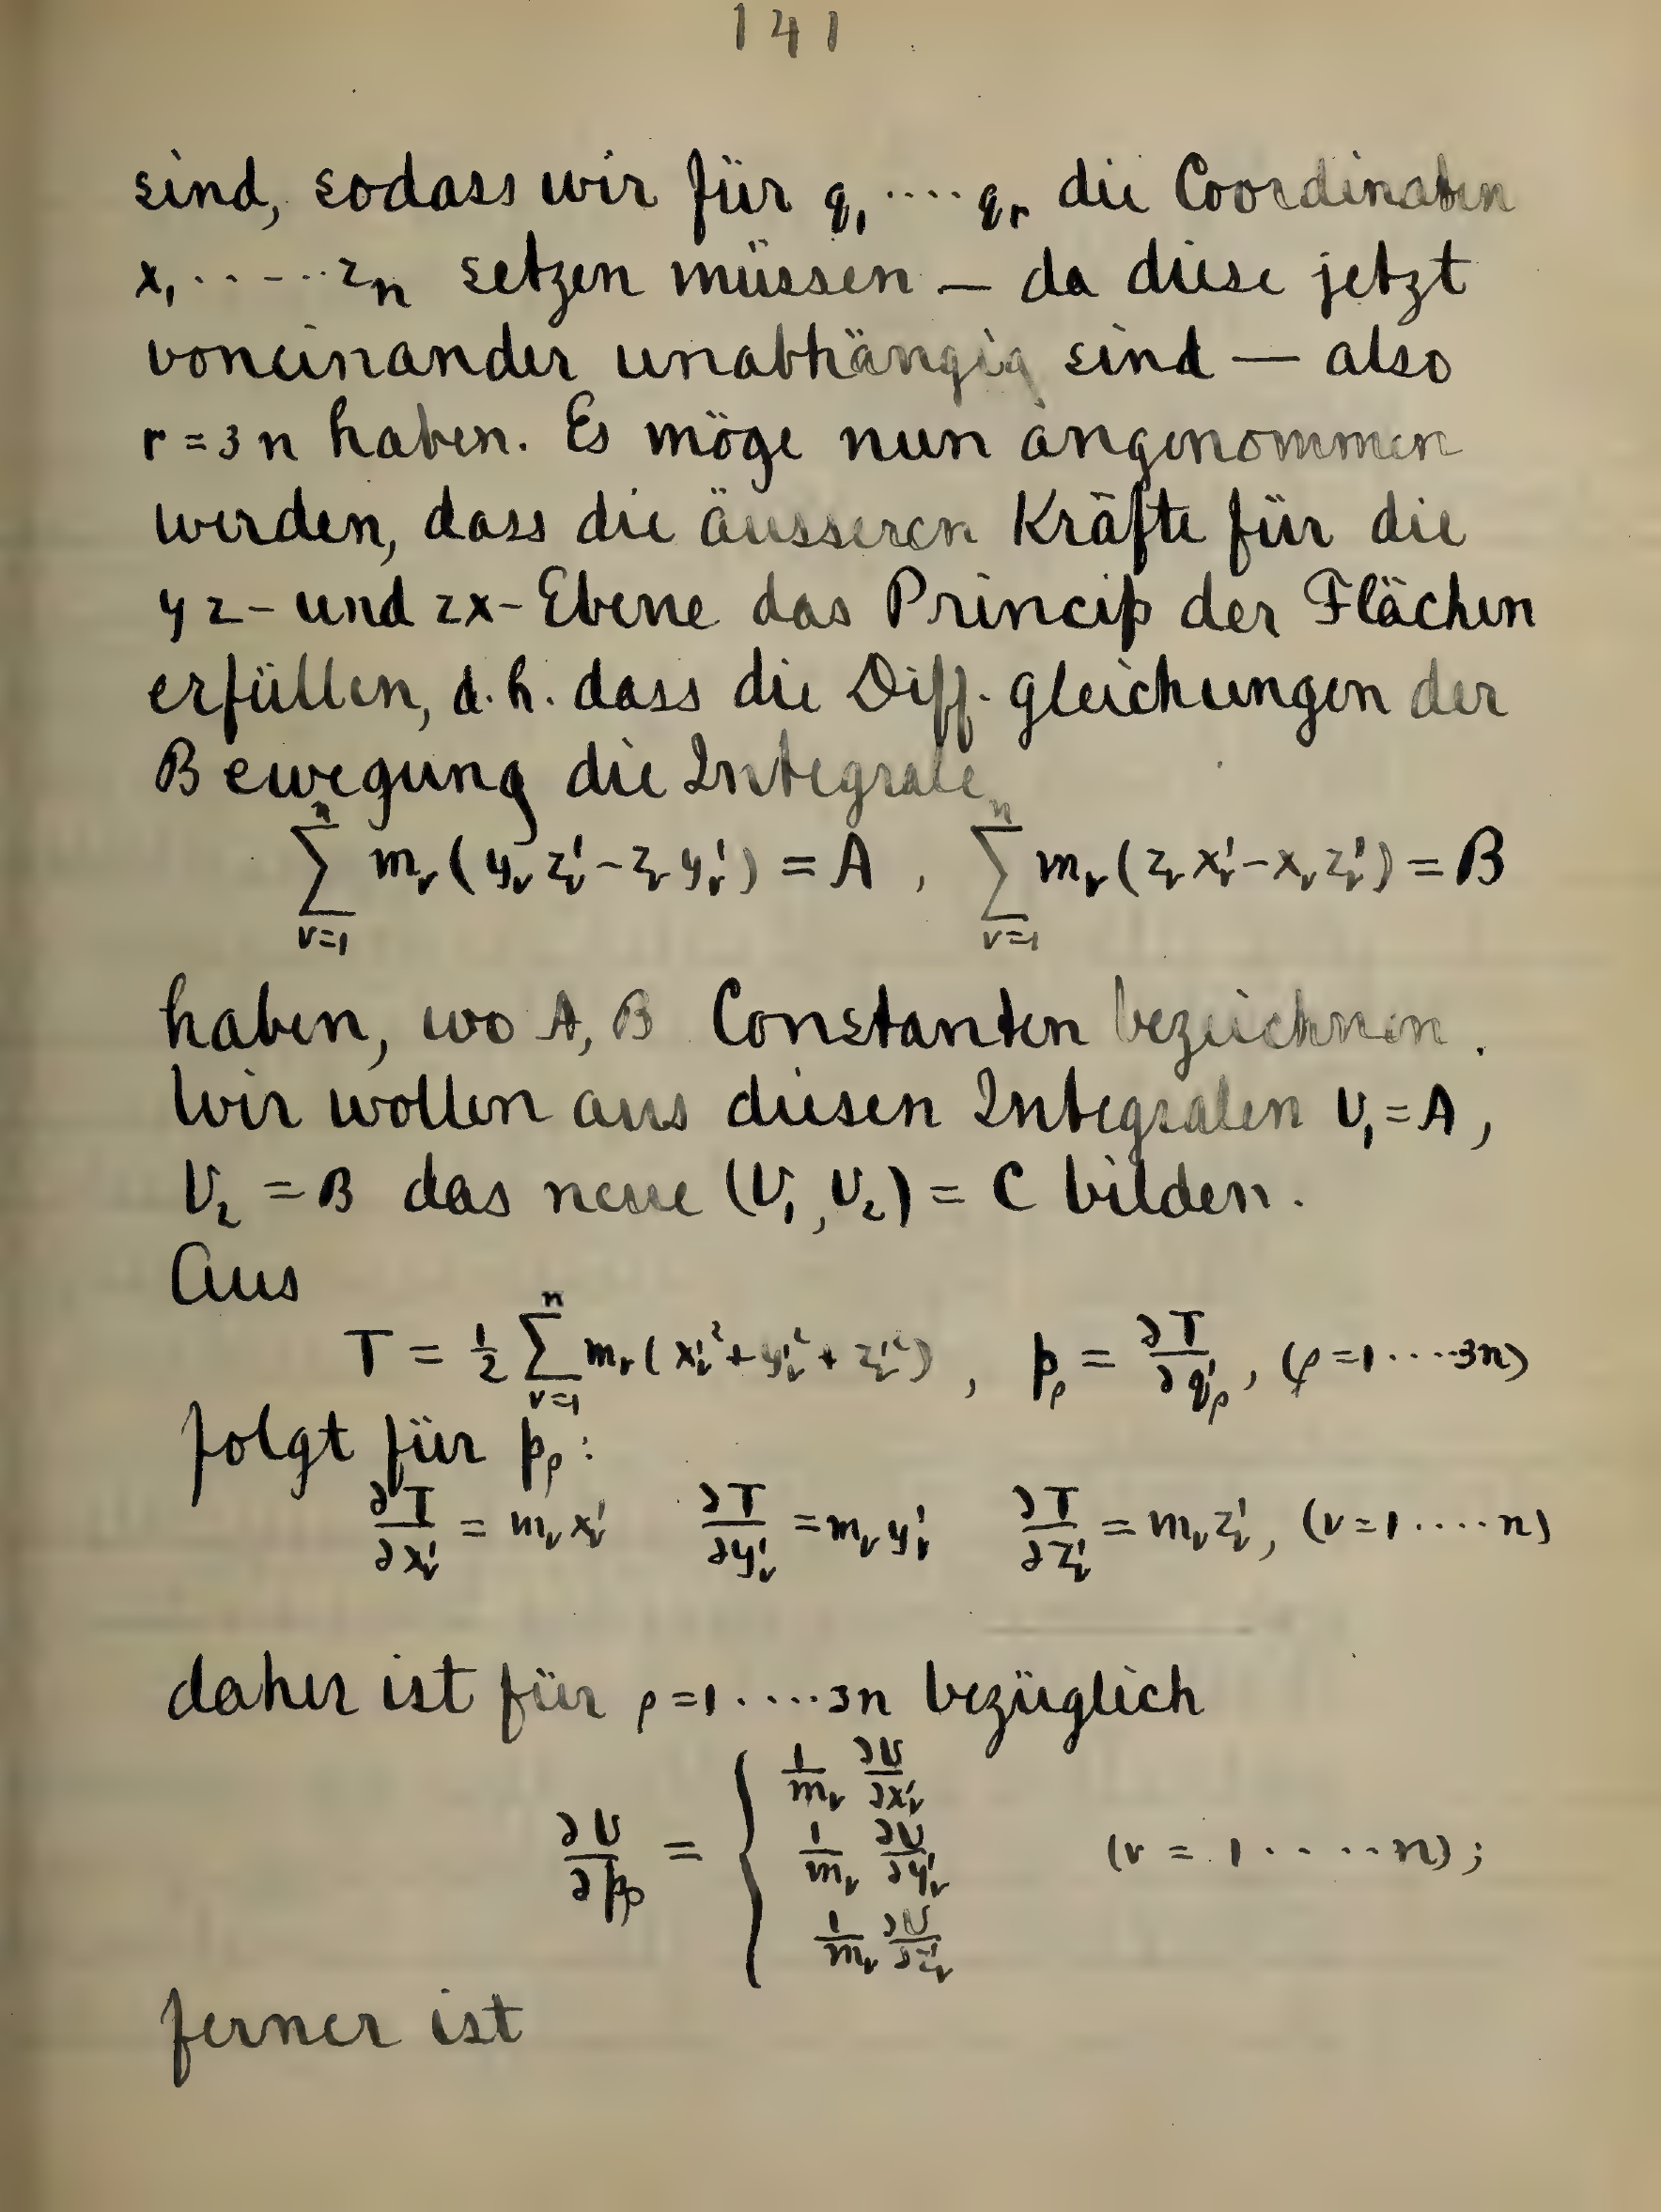 141
sind, sodass wir für q₁ ···· qᵣ die Coordinaten
x₁ ······ zₙ setzen müssen — da diese jetzt
voneinander unabhängig sind — also
r = 3n haben. Es möge nun angenommen
werden, dass die äusseren Kräfte für die
yz- und zx-Ebene das Princip der Flächen
erfüllen, d.h. dass die Diff.gleichungen der
Bewegung die Integrale
∑_{ν=1}^{n} m_ν (y_ν z'_ν − z_ν y'_ν) = A , ∑_{ν=1}^{n} m_ν (z_ν x'_ν − x_ν z'_ν) = B
haben, wo A, B Constanten bezeichnen.
Wir wollen aus diesen Integralen U₁ = A,
U₂ = B das neue (U₁, U₂) = C bilden.
Aus
T = ½ ∑_{ν=1}^{n} m_ν (x'_ν² + y'_ν² + z'_ν²) , p_ρ = ∂T/∂q'_ρ, (ρ = 1 ····· 3n)
folgt für p_ρ:
∂T/∂x'_ν = m_ν x'_ν ∂T/∂y'_ν = m_ν y'_ν ∂T/∂z'_ν = m_ν z'_ν, (ν = 1 ····· n)
daher ist für ρ = 1 ····· 3n bezüglich
∂U/∂p_ρ = { 1/m_ν ∂U/∂x'_ν
1/m_ν ∂U/∂y'_ν (ν = 1 ····· n);
1/m_ν ∂U/∂z'_ν
ferner ist